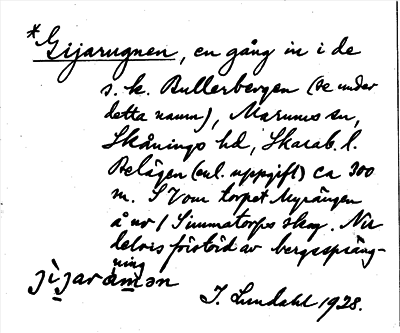 *Gijarugnen, en gång in i de
s. k. Bullerbergen (se under
detta namn), Marums sn,
Skånings hd, Skarab. l.
Belägen (enl. uppgift) ca 300
m. S Vom torpet Myrängen
å nv / Simmatorps skog. Nu
delvis förstörd av bergspräng-
ning
J. Lundahl 1928.